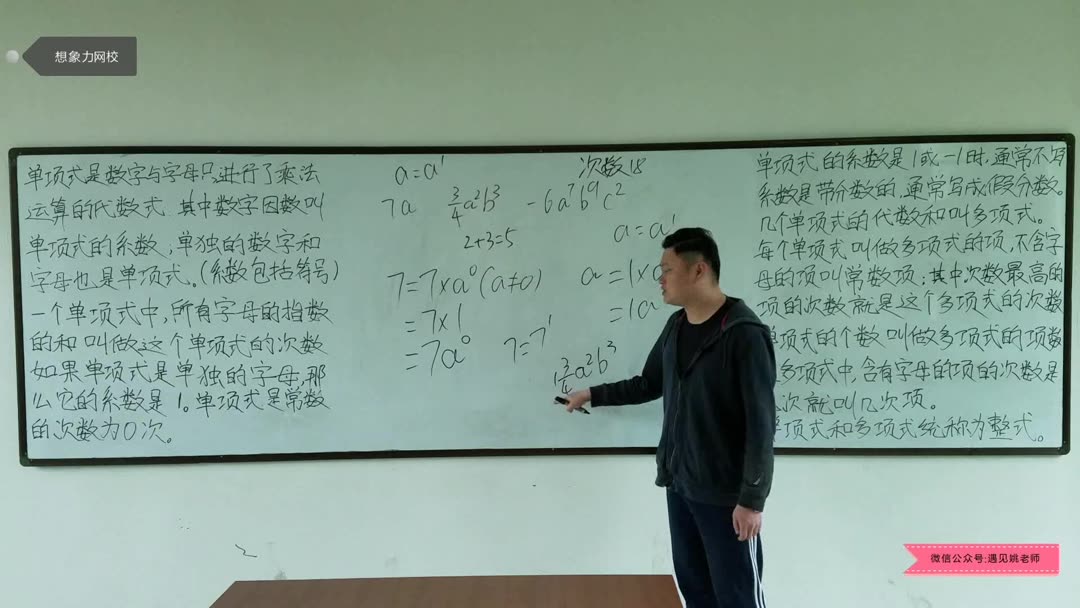 想象力网校
单项式是数字与字母只进行了乘法
运算的代数式.其中数字因数叫
单项式的系数,单独的数字和
字母也是单项式。(系数包括符号)
一个单项式中,所有字母的指数
的和叫做这个单项式的次数
如果单项式是单独的字母,那
么它的系数是1。单项式是常数
的次数为0次。
a=a¹
7a  3/4a²b³  -6a⁷b⁹c²
次数18
2+3=5
a=a¹
7=7×a⁰(a≠0)
=7×1
=7a⁰
7=7¹
a=1×a
=1a
1 3/4a²b³
单项式的系数是1或-1时,通常不写
系数是带分数的,通常写成假分数。
几个单项式的代数和叫多项式。
每个单项式叫做多项式的项,不含字
母的项叫常数项;其中次数最高的
项的次数就是这个多项式的次数
单项式的个数叫做多项式的项数
多项式中,含有字母的项的次数是
几次就叫几次项。
单项式和多项式统称为整式。
微信公众号:遇见姚老师